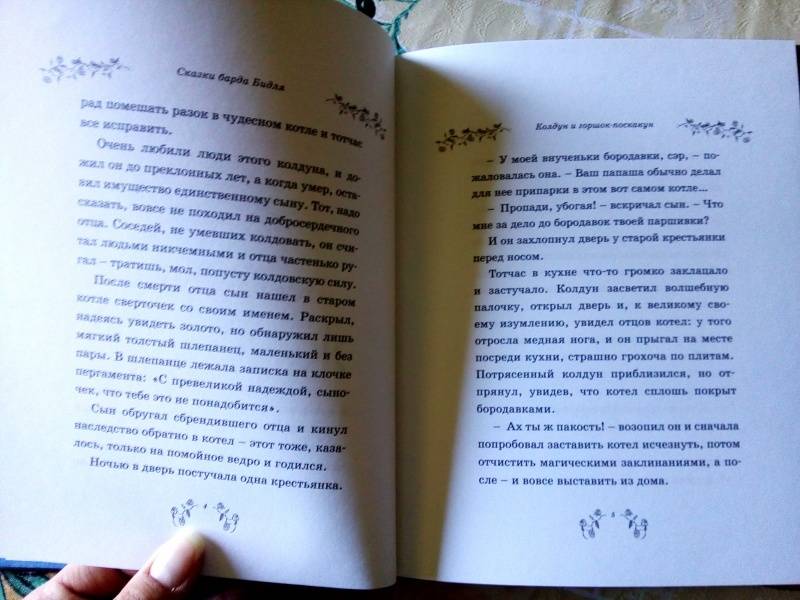 Сказки барда Бидля
рад помешать разок в чудесном котле и тотчас
все исправить.
Очень любили люди этого колдуна, и до-
жил он до преклонных лет, а когда умер, оста-
вил имущество единственному сыну. Тот, надо
сказать, вовсе не походил на добросердечного
отца. Соседей, не умевших колдовать, он счи-
тал людьми никчемными и отца частенько ру-
гал – тратишь, мол, попусту колдовскую силу.
После смерти отца сын нашел в старом
котле сверточек со своим именем. Раскрыл,
надеясь увидеть золото, но обнаружил лишь
мягкий толстый шлепанец, маленький и без
пары. В шлепанце лежала записка на клочке
пергамента: «С превеликой надеждой, сыно-
чек, что тебе это не понадобится».
Сын обругал сбрендившего отца и кинул
наследство обратно в котел – этот тоже, каза-
лось, только на помойное ведро и годился.
Ночью в дверь постучала одна крестьянка.
4
Колдун и горшок-поскакун
– У моей внученьки бородавки, сэр, – по-
жаловалась она. – Ваш папаша обычно делал
для нее припарки в этом вот самом котле...
– Пропади, убогая! – вскричал сын. – Что
мне за дело до бородавок твоей паршивки?
И он захлопнул дверь у старой крестьянки
перед носом.
Тотчас в кухне что-то громко заклацало
и застучало. Колдун засветил волшебную
палочку, открыл дверь и, к великому сво-
ему изумлению, увидел отцов котел: у того
отросла медная нога, и он прыгал на месте
посреди кухни, страшно грохоча по плитам.
Потрясенный колдун приблизился, но от-
прянул, увидев, что котел сплошь покрыт
бородавками.
– Ах ты ж пакость! – возопил он и сначала
попробовал заставить котел исчезнуть, потом
отчистить магическими заклинаниями, а по-
сле – и вовсе выставить из дома.
5